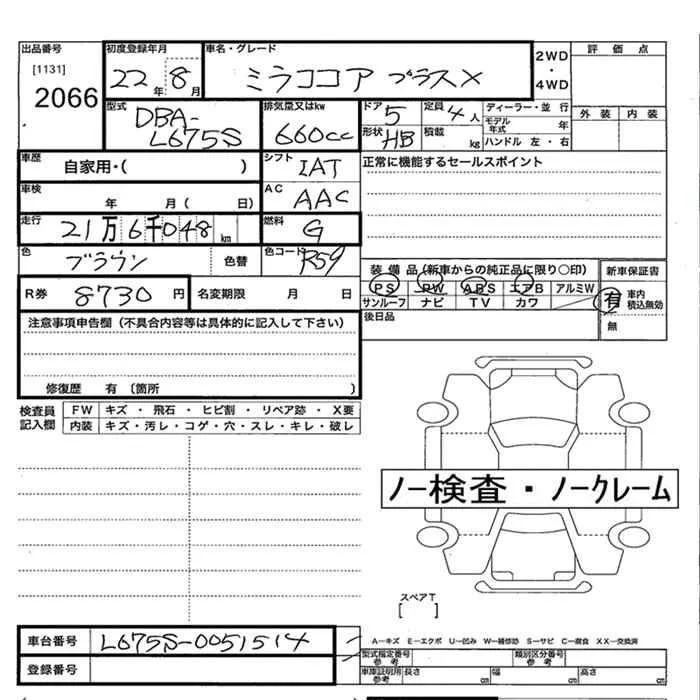 出品番号 初度登録年月 車名・グレード 2WD ・ 4WD 評価点
[1131] 2066 22年 8月 ミラココア プラスX 外装 内装
型式 DBA-L675S 排気量又はkw 660cc ドア 5 定員 4人 ディーラー・並行
形状 HB 積載 kg モデル年式 年 ハンドル 左・右
車歴 自家用・( ) シフト IAT 正常に機能するセールスポイント
車検 年 月 ( 日) AC AAC
走行 21万6千048km 燃料 G
色 ブラウン 色替 色コード R59 装備品(新車からの純正品に限り○印) 新車保証書
R券 8730円 名変期限 月 日 PS PW ABS エアB アルミW 有 車内積込無効
サンルーフ ナビ TV カワ 無
注意事項申告欄(不具合内容等は具体的に記入して下さい) 後日品
修復歴 有 〔箇所 )
検査員記入欄 FW キズ・飛石・ヒビ割・リペア跡・X要
内装 キズ・汚レ・コゲ・穴・スレ・キレ・破レ
ノー検査・ノークレーム
スペアT
[ ]
車台番号 L675S-0051514 A−キズ E−エクボ U−凹み W−補修跡 S−サビ C−腐食 XX−交換済
登録番号 型式指定番号 参考 類別区分番号 参考
車庫証明用参考 長さ cm 幅 cm 高さ cm